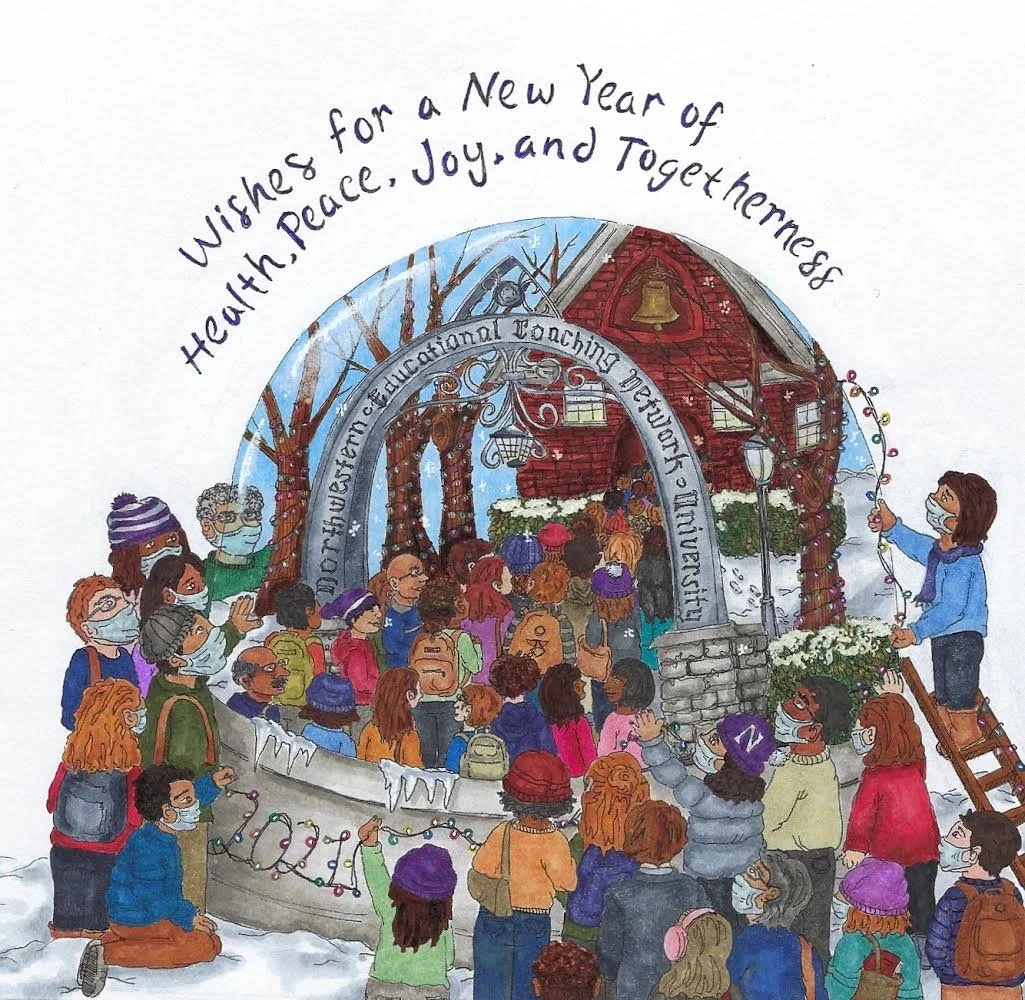 Wishes for a New Year of
Health, Peace, Joy, and Togetherness
Northwestern • Educational Coaching Network • University
N
2021